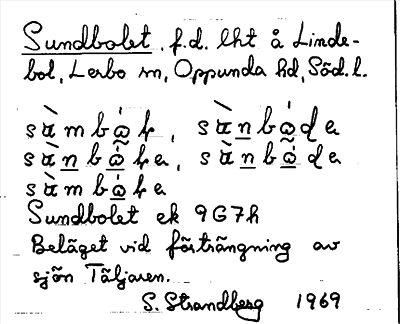 Sundbolet. f.d. lht å Linde-
bol, Lerbo sn, Oppunda hd, Söd. l.
sàmbω̇t, sànbω̇de
sànbω̃te, sànbω̃de
sàmbω̇te
Sundbolet ek 9G7h
Beläget vid förträngning av
sjön Täljaren.
S. Strandberg 1969